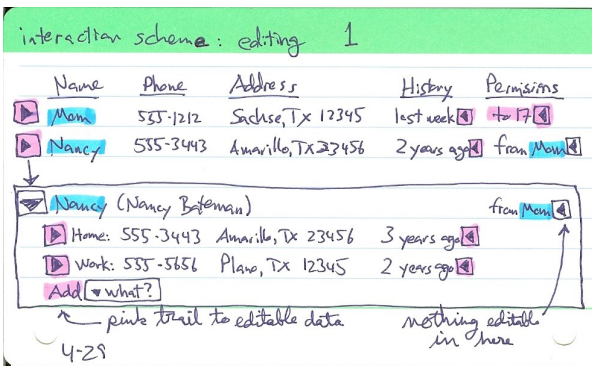 interaction scheme: editing 1
Name Phone Address History Permissions
Mom 555-1212 Sachse, Tx 12345 last week to 17
Nancy 555-3443 Amarillo, TX 23456 2 years ago from Mom
Nancy (Nancy Bateman) from Mom
Home: 555-3443 Amarillo, Tx 23456 3 years ago
Work: 555-5656 Plano, TX 12345 2 years ago
Add what?
pink trail to editable data
nothing editable
in here
4-29